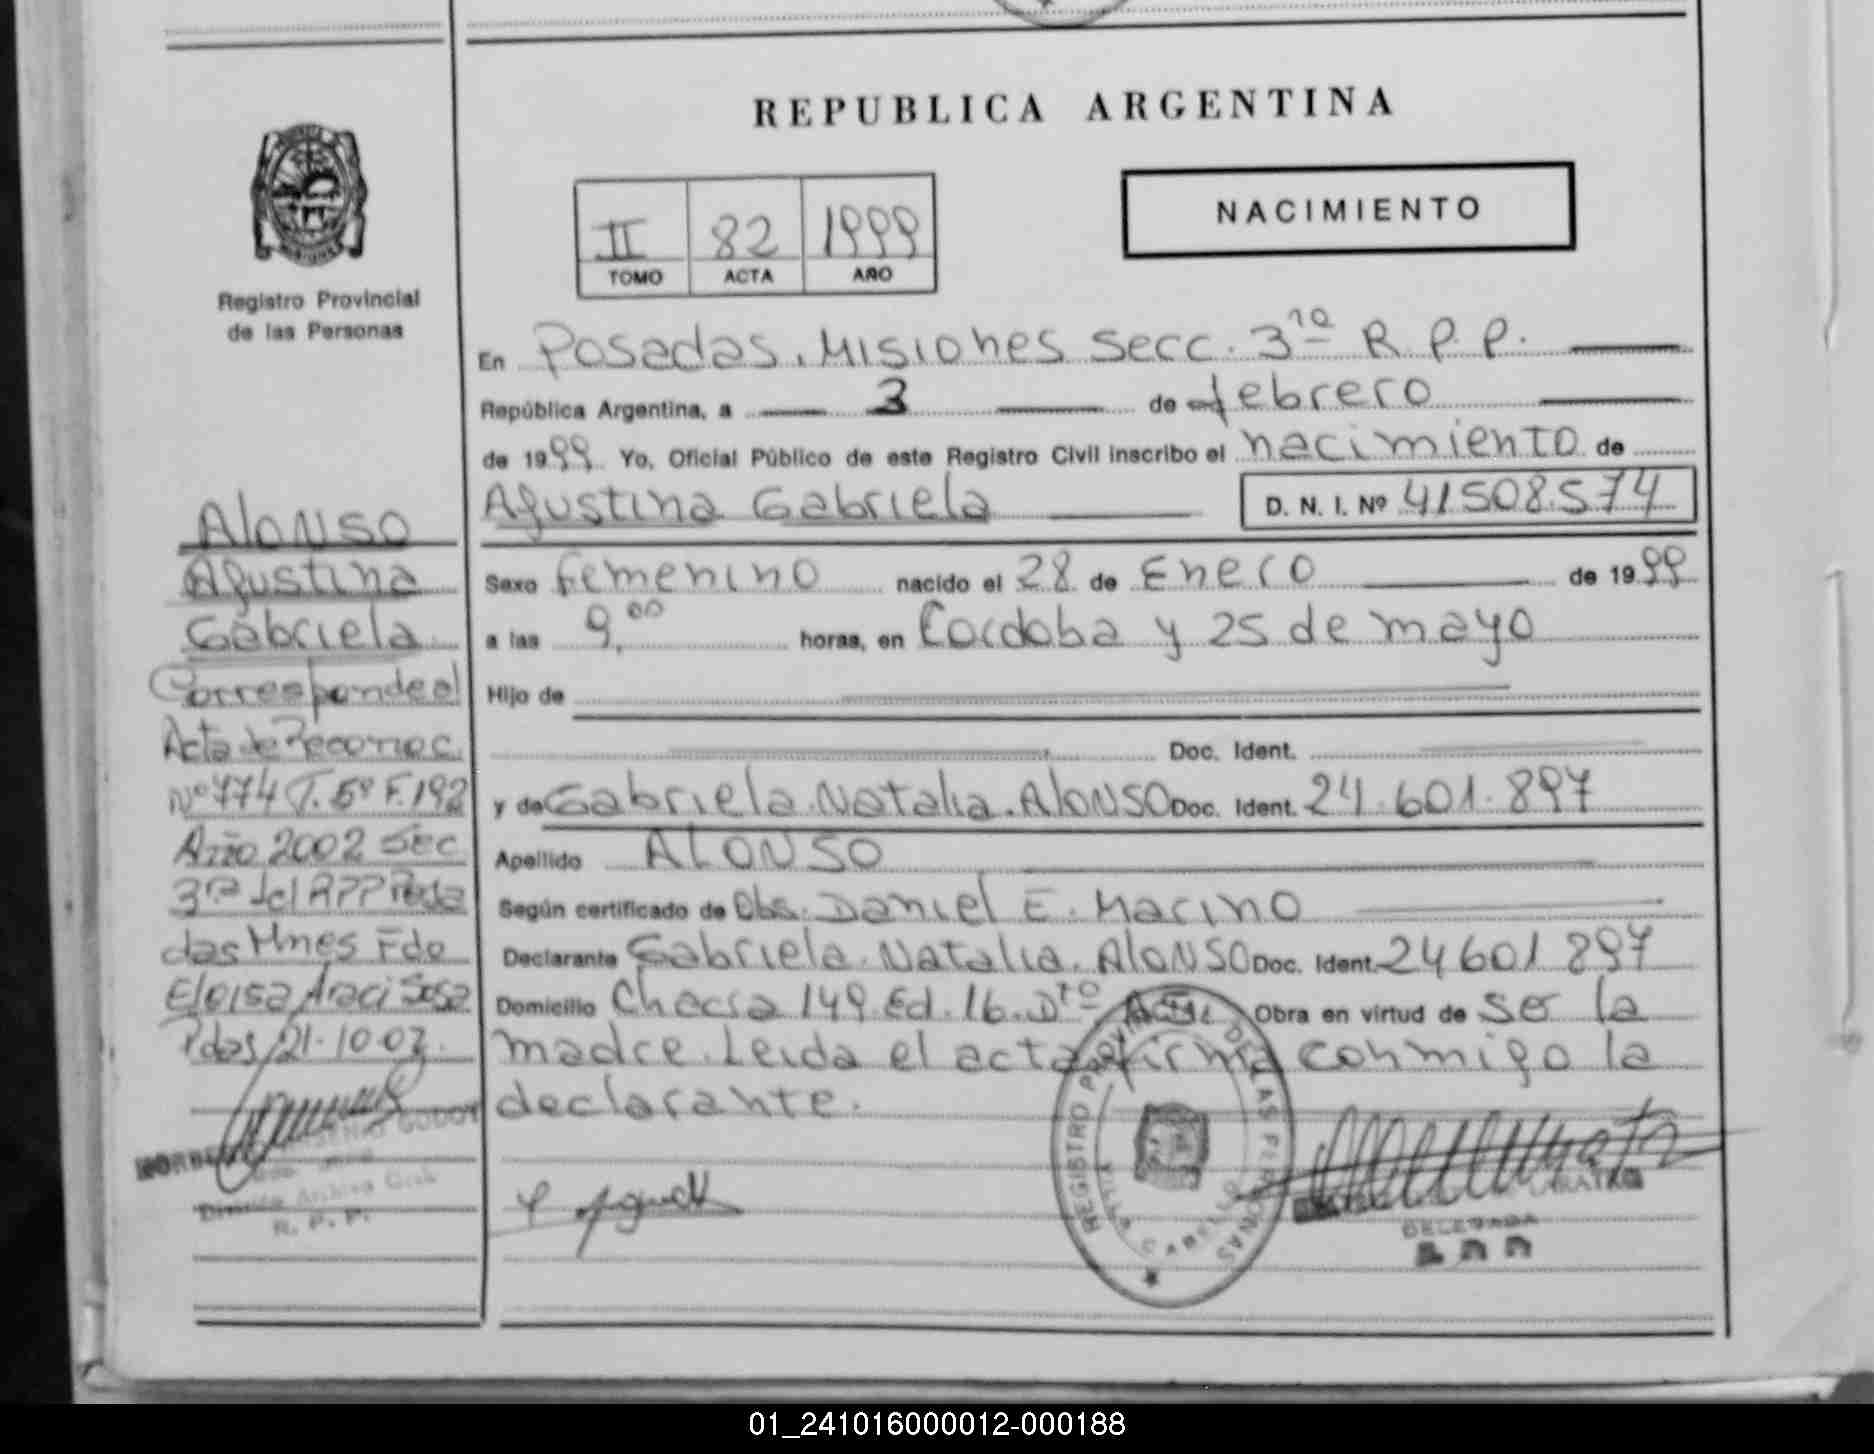 REPUBLICA ARGENTINA
NACIMIENTO
II 82 1999
TOMO ACTA AÑO
Registro Provincial
de las Personas
En Posadas, Misiones Secc. 3ra R.P.P.
República Argentina, a 3 de febrero
de 1999 Yo, Oficial Público de este Registro Civil inscribo el nacimiento de
Agustina Gabriela D. N. I. Nº 41508.574
Sexo Femenino nacido el 28 de Enero de 1999
a las 9,00 horas, en Cordoba y 25 de mayo
Hijo de
Doc. Ident.
y de Gabriela Natalia Alonso Doc. Ident. 24.601.897
Apellido ALONSO
Según certificado de Obs. Daniel E. Macino
Declarante Gabriela Natalia Alonso Doc. Ident. 24601897
Domicilio Chacra 149 Ed. 16 Dto Obra en virtud de ser la
madre. Leida el acta firma conmigo la
declarante.
Alonso
Agustina
Gabriela
Corresponde al
Acta de Reconoc.
Nº 774 T. 5º F. 192
Año 2002 Sec
3ra del RPP Posa
das Mnes Fdo
Eloisa Araci Sosa
Pdas, 21-10-02
GODOY
División Archivo Gral
R. P. P.
REGISTRO PROVINCIAL DE LAS PERSONAS
VILLA CABELLO
DELEGADA
01_241016000012-000188